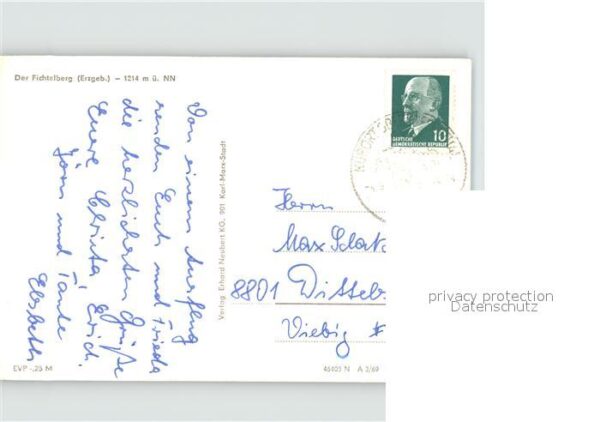 Der Fichtelberg (Erzgeb.) – 1214 m ü. NN
Von einem Ausflug
senden Euch und Frieda
die herzlichsten Grüße
Eure Christa, Erich.
Jörn und Tante
Elsbeth
Verlag Erhard Neubert KG, 901 Karl-Marx-Stadt
10
DEUTSCHE
DEMOKRATISCHE REPUBLIK
Herrn
Max
8801
Viebig
EVP -,25 M
45405 N A 3/69
privacy protection
Datenschutz